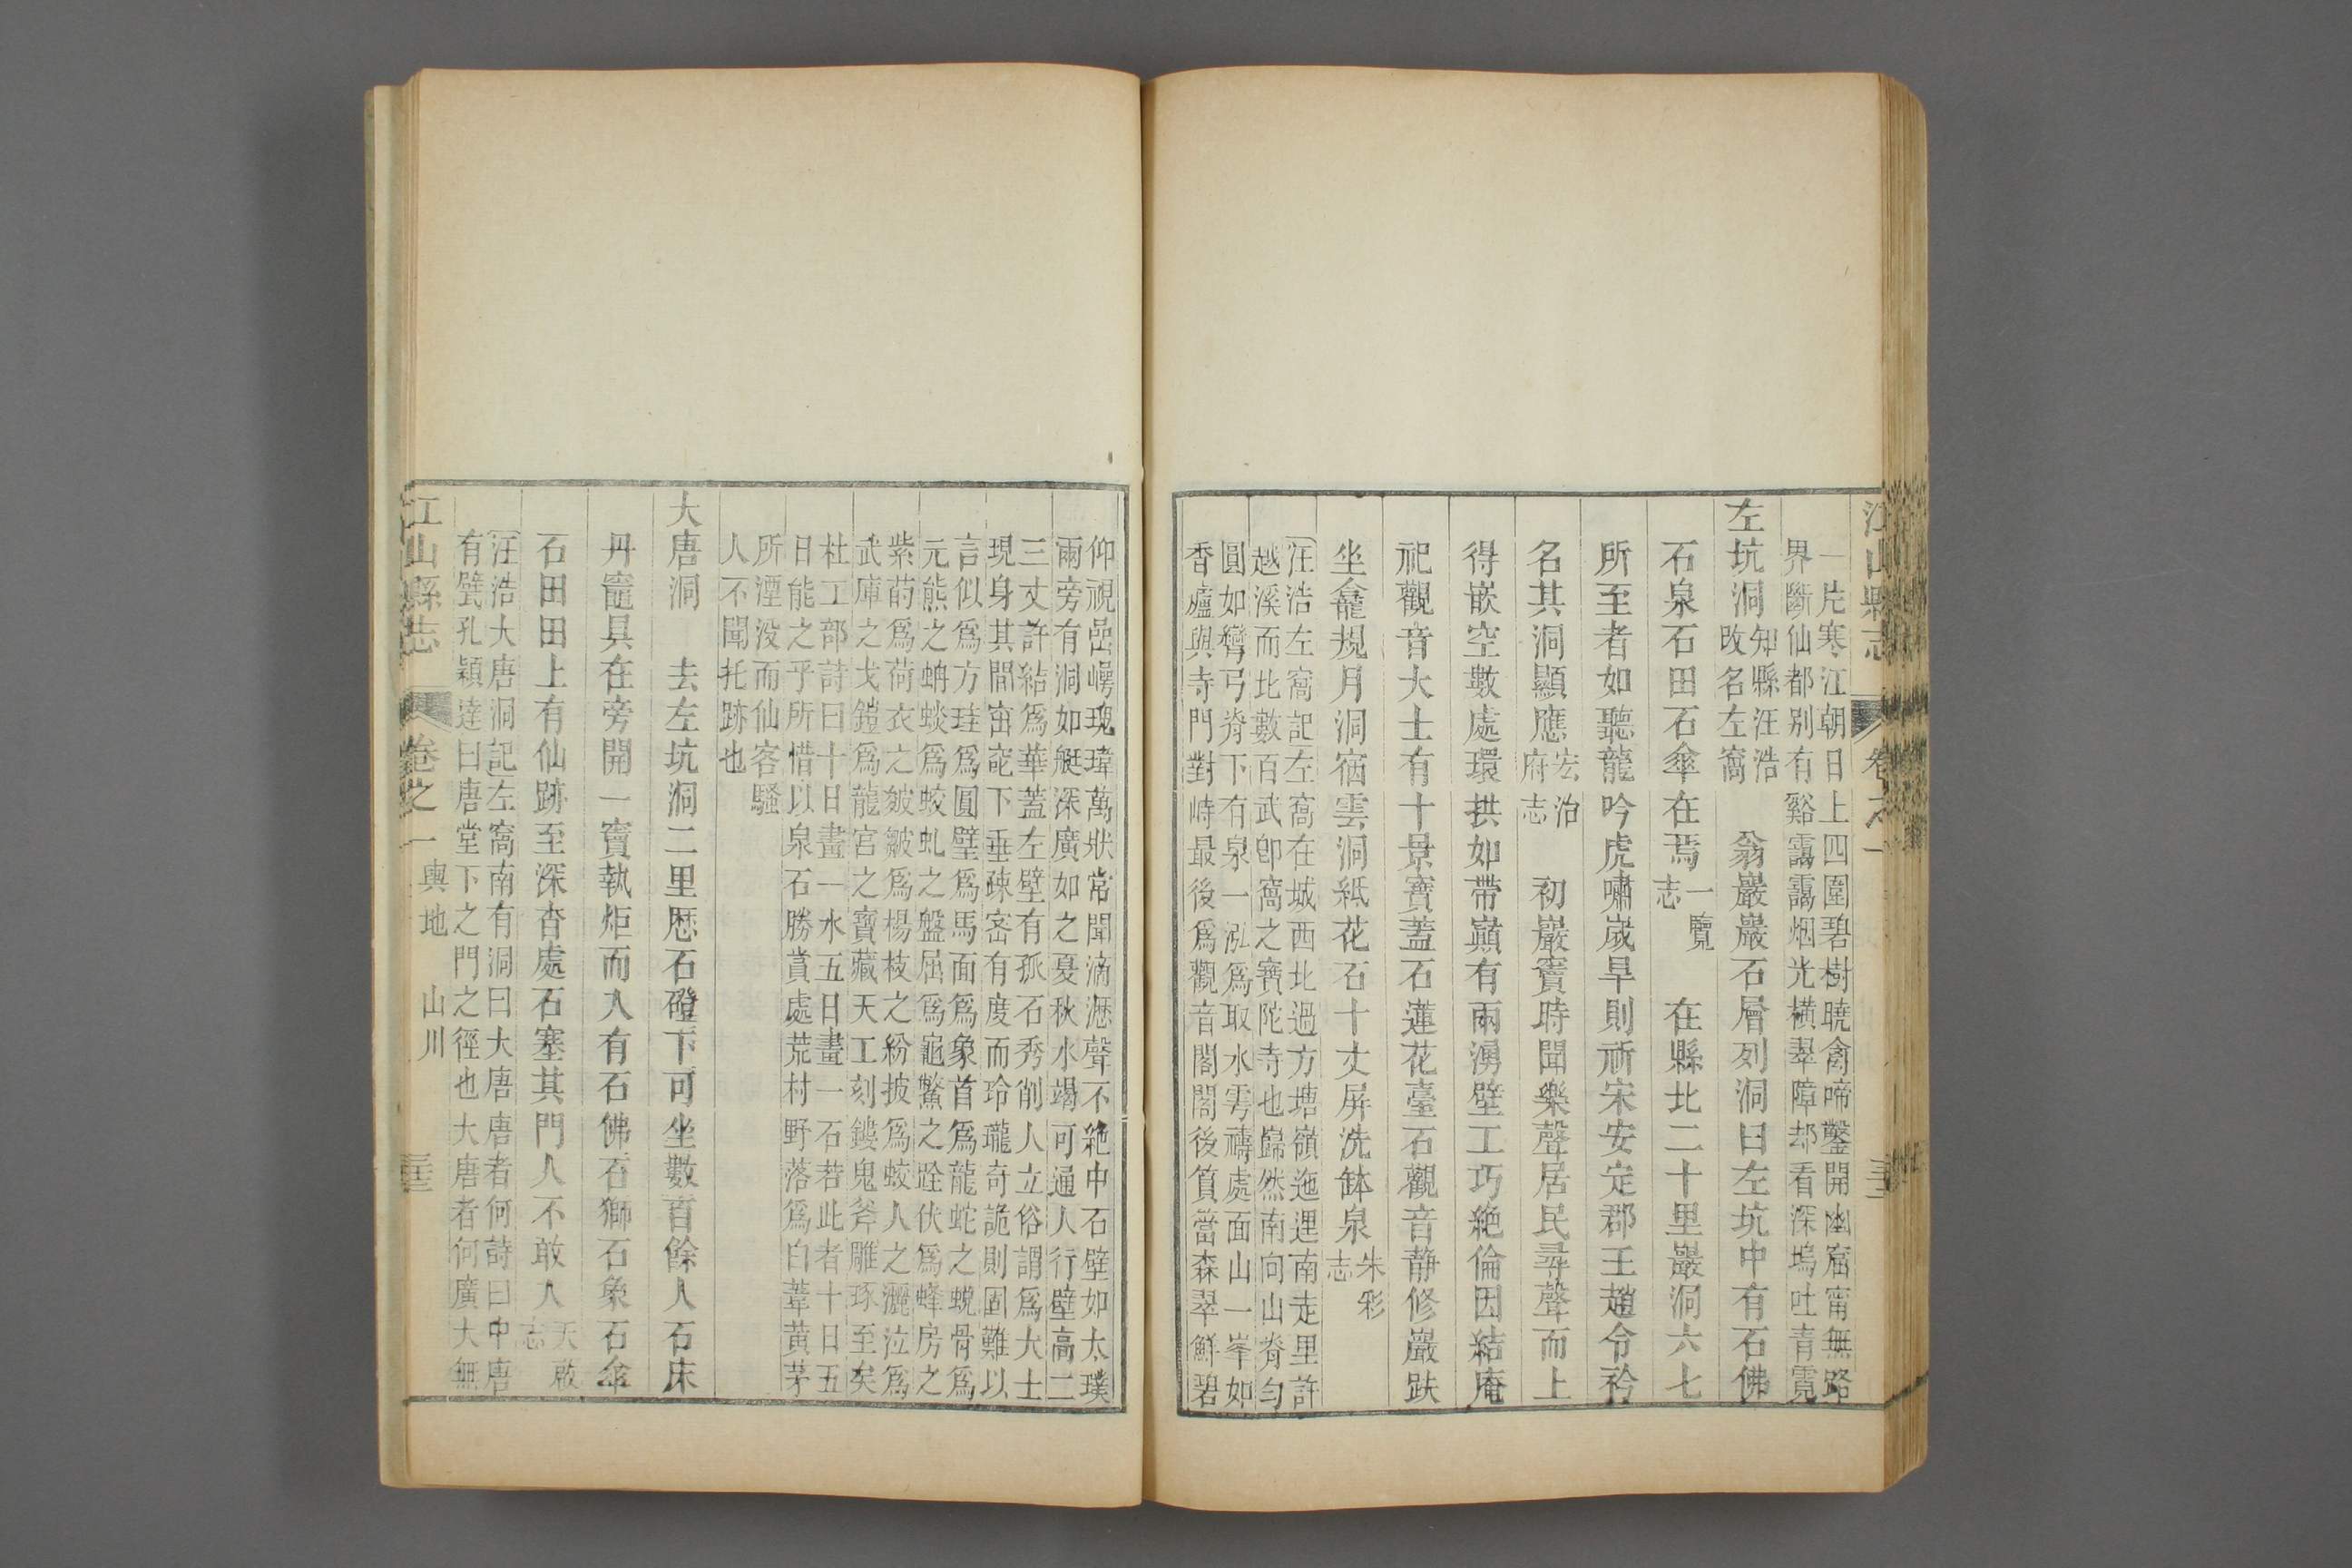 江山縣志 卷之一
一片寒江朝日上四圍碧樹曉禽啼鑿開幽窟甯無路
界斷仙都別有谿靄靄烟光橫翠障却看深塢吐青霓
左坑洞 知縣汪浩 翁巖巖石層列洞曰左坑中有石佛
改名左窩
石泉石田石傘在焉 一覽 在縣北二十里巖洞六七
志
所至者如聽龍吟虎嘯歲旱則祈宋安定郡王趙令衿
名其洞顯應 宏治 初巖竇時聞樂聲居民尋聲而上
府志
得嵌空數處環拱如帶巔有兩湧壁工巧絶倫因結庵
祀觀音大士有十景寶蓋石蓮花臺石觀音静修巖趺
坐龕規月洞宿雲洞紙花石十丈屏洗鉢泉 朱彩
志
汪浩左窩記左窩在城西北過方塘嶺迤逦南走里許
越溪而北數百武卽窩之寶陀寺也巋然南向山脊勻
圓如彎弓脊下有泉一泓爲取水雩禱處面山一峯如
香廬與寺門對峙最後爲觀音閣閣後篔簹森翠鮮碧
仰視嵒㠥瑰瑋萬狀常聞滴瀝聲不絶中石壁如太璞
兩旁有洞如艇深廣如之夏秋水竭可通人行壁高二
三丈許結爲華蓋左壁有孤石秀削人立俗謂爲大士
現身其間窋窀下垂疎密有度而玲瓏奇詭則固難以
言似爲方珪爲圓璧爲馬面爲象首爲龍蛇之蜕骨爲
元熊之蚺蜦爲蛟虬之盤屈爲黿鱉之跧伏爲蜂房之
紫菂爲荷衣之皴皺爲楊枝之紛披爲蛟人之灑泣爲
武庫之戈鎧爲龍宮之寶藏天工刻鏤鬼斧雕琢至矣
杜工部詩曰十日畫一水五日畫一石若此者十日五
日能之乎所惜以泉石勝賞處荒村野落爲白葦黃茅
所湮没而仙客騷
人不聞托跡也
大唐洞 去左坑洞二里歷石磴下可坐數百餘人石床
丹竈具在旁開一竇執炬而入有石佛石獅石象石傘
石田田上有仙跡至深杳處石塞其門人不敢入 天啟
志
汪浩大唐洞記左窩南有洞曰大唐唐者何詩曰中唐
有甓孔穎達曰唐堂下之門之徑也大唐者何廣大無
江山縣志 卷之一 輿地 山川 三